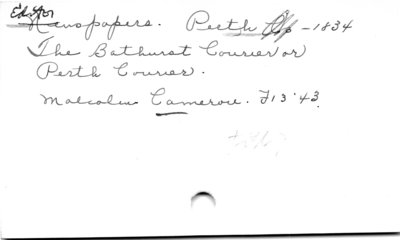 Editor
Newspapers. Perth - 1834
The Bathurst Courier or
Perth Courier.
Malcolm Cameron. F13.43.